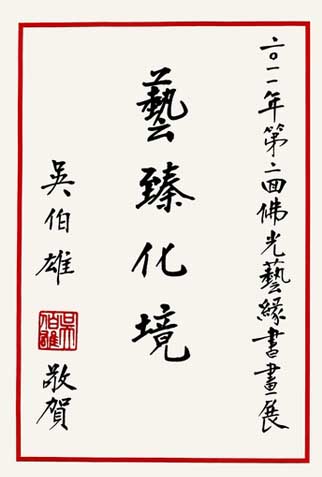 二〇一一年第二回佛光藝緣書畫展
藝臻化境
吳伯雄
吳伯雄
敬賀